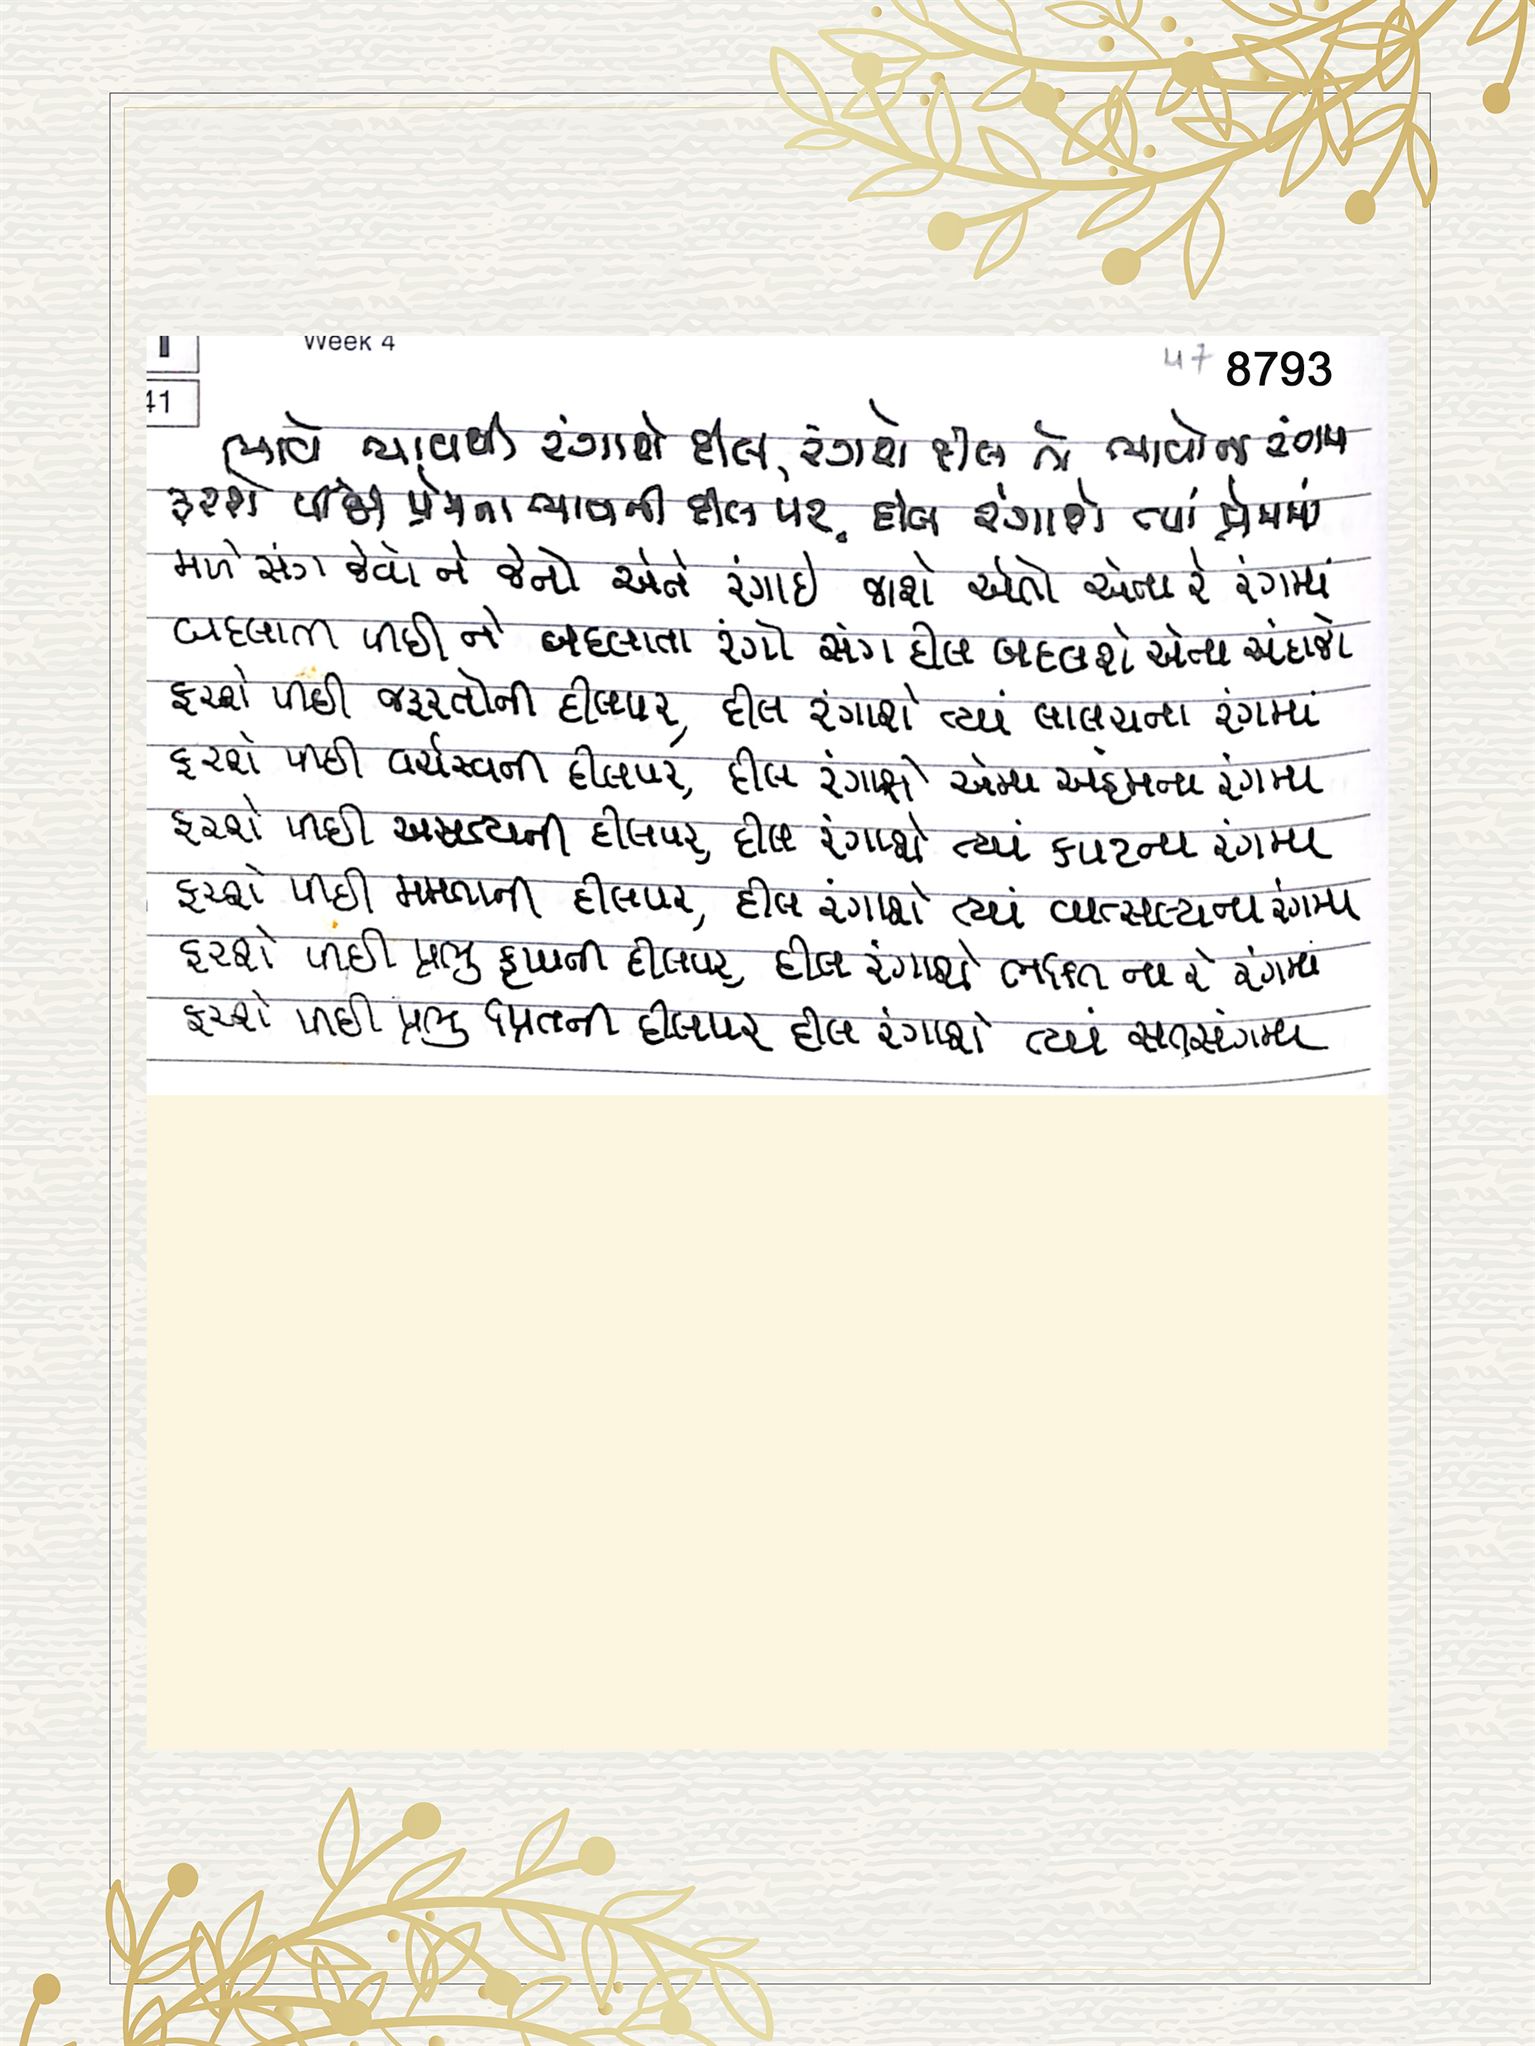 Week 4
47 8793
41
ભાવે ભાવથી રંગાશે દીલ, રંગાશે દીલ તો ભાવોના રંગમાં
ફરશે પીંછી પ્રેમના ભાવની દીલ પર, દીલ રંગાશે ત્યાં પ્રેમમાં
મળે સંગ જેવો ને જેનો એને રંગાઇ જાશે એતો એના રે રંગમાં
બદલાતી પીછી ને બદલાતા રંગો સંગ દીલ બદલશે એના અંદાજો
ફરશે પીછી જરૂરતોની દીલપર, દીલ રંગાશે ત્યાં લાલચના રંગમાં
ફરશે પીછી વર્ચસ્વની દીલપર, દીલ રંગાશે એમા અહંમના રંગમા
ફરશે પીછી અસત્યની દીલપર, દીલ રંગાશે ત્યાં કપટના રંગમા
ફરશે પીછી મમતાની દીલપર, દીલ રંગાશે ત્યાં વાત્સલ્યના રંગમા
ફરશે પીછી પ્રભુ કૃપાની દીલપર, દીલ રંગાશે ભક્તિ ના રે રંગમાં
ફરશે પીછી પ્રભુ પ્રિતની દીલપર દીલ રંગાશે ત્યાં સતસંગમા